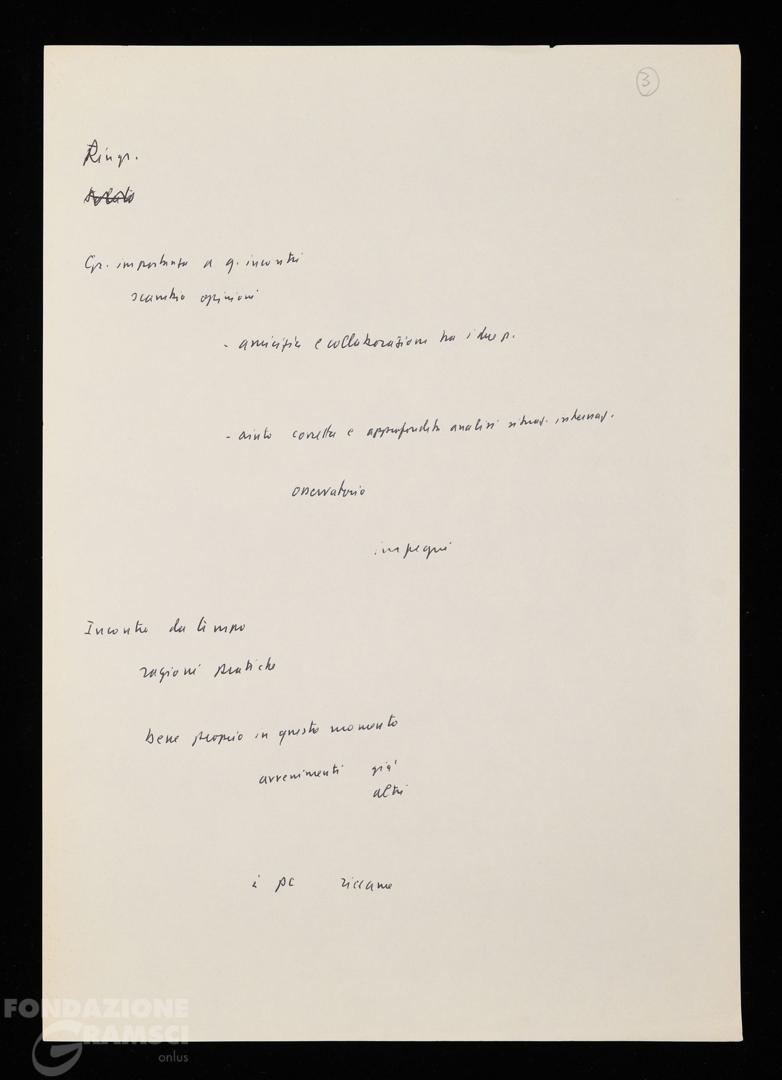 3
Ringr.
Gr. importanza a q. incontri
scambio opinioni
- amicizia e collaborazione tra i due p.
- aiuto corretta e approfondita analisi situaz. internaz.
osservatorio
impegni
Incontro da tempo
ragioni pratiche
bene proprio in questo momento
avvenimenti già
altri
i pc
FONDAZIONE
GRAMSCI
onlus